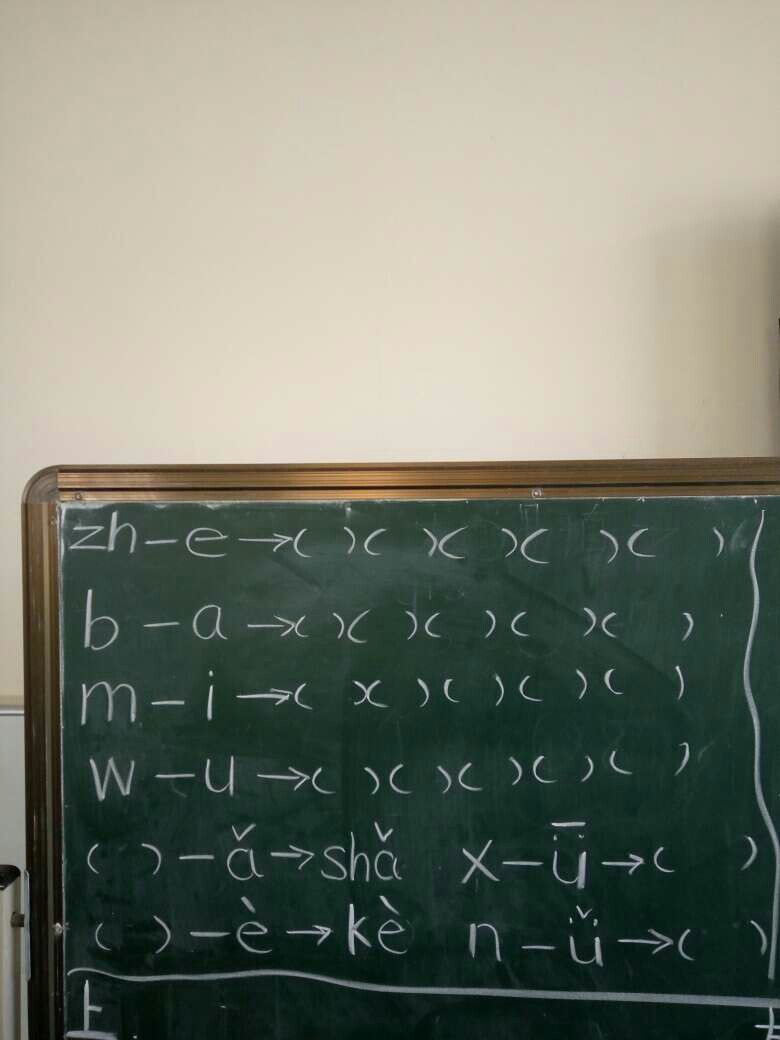 zh-e→( )( )( )( )( )
b-a→( )( )( )( )( )
m-i→( )( )( )( )( )
w-u→( )( )( )( )( )
( )-ǎ→shǎ x-ǖ→( )
( )-è→kè n-ǚ→( )